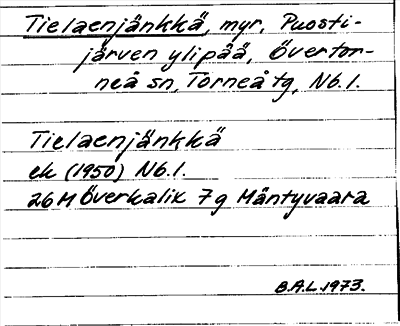 Tielaenjänkkä, myr, Puosti-
järven ylipää, Övertor-
neå sn, Torneå tg, Nb. l.
Tielaenjänkkä
ek (1950) Nb. l.
26 M Överkalix 7 g Mäntyvaara
B.A.L. 1973.